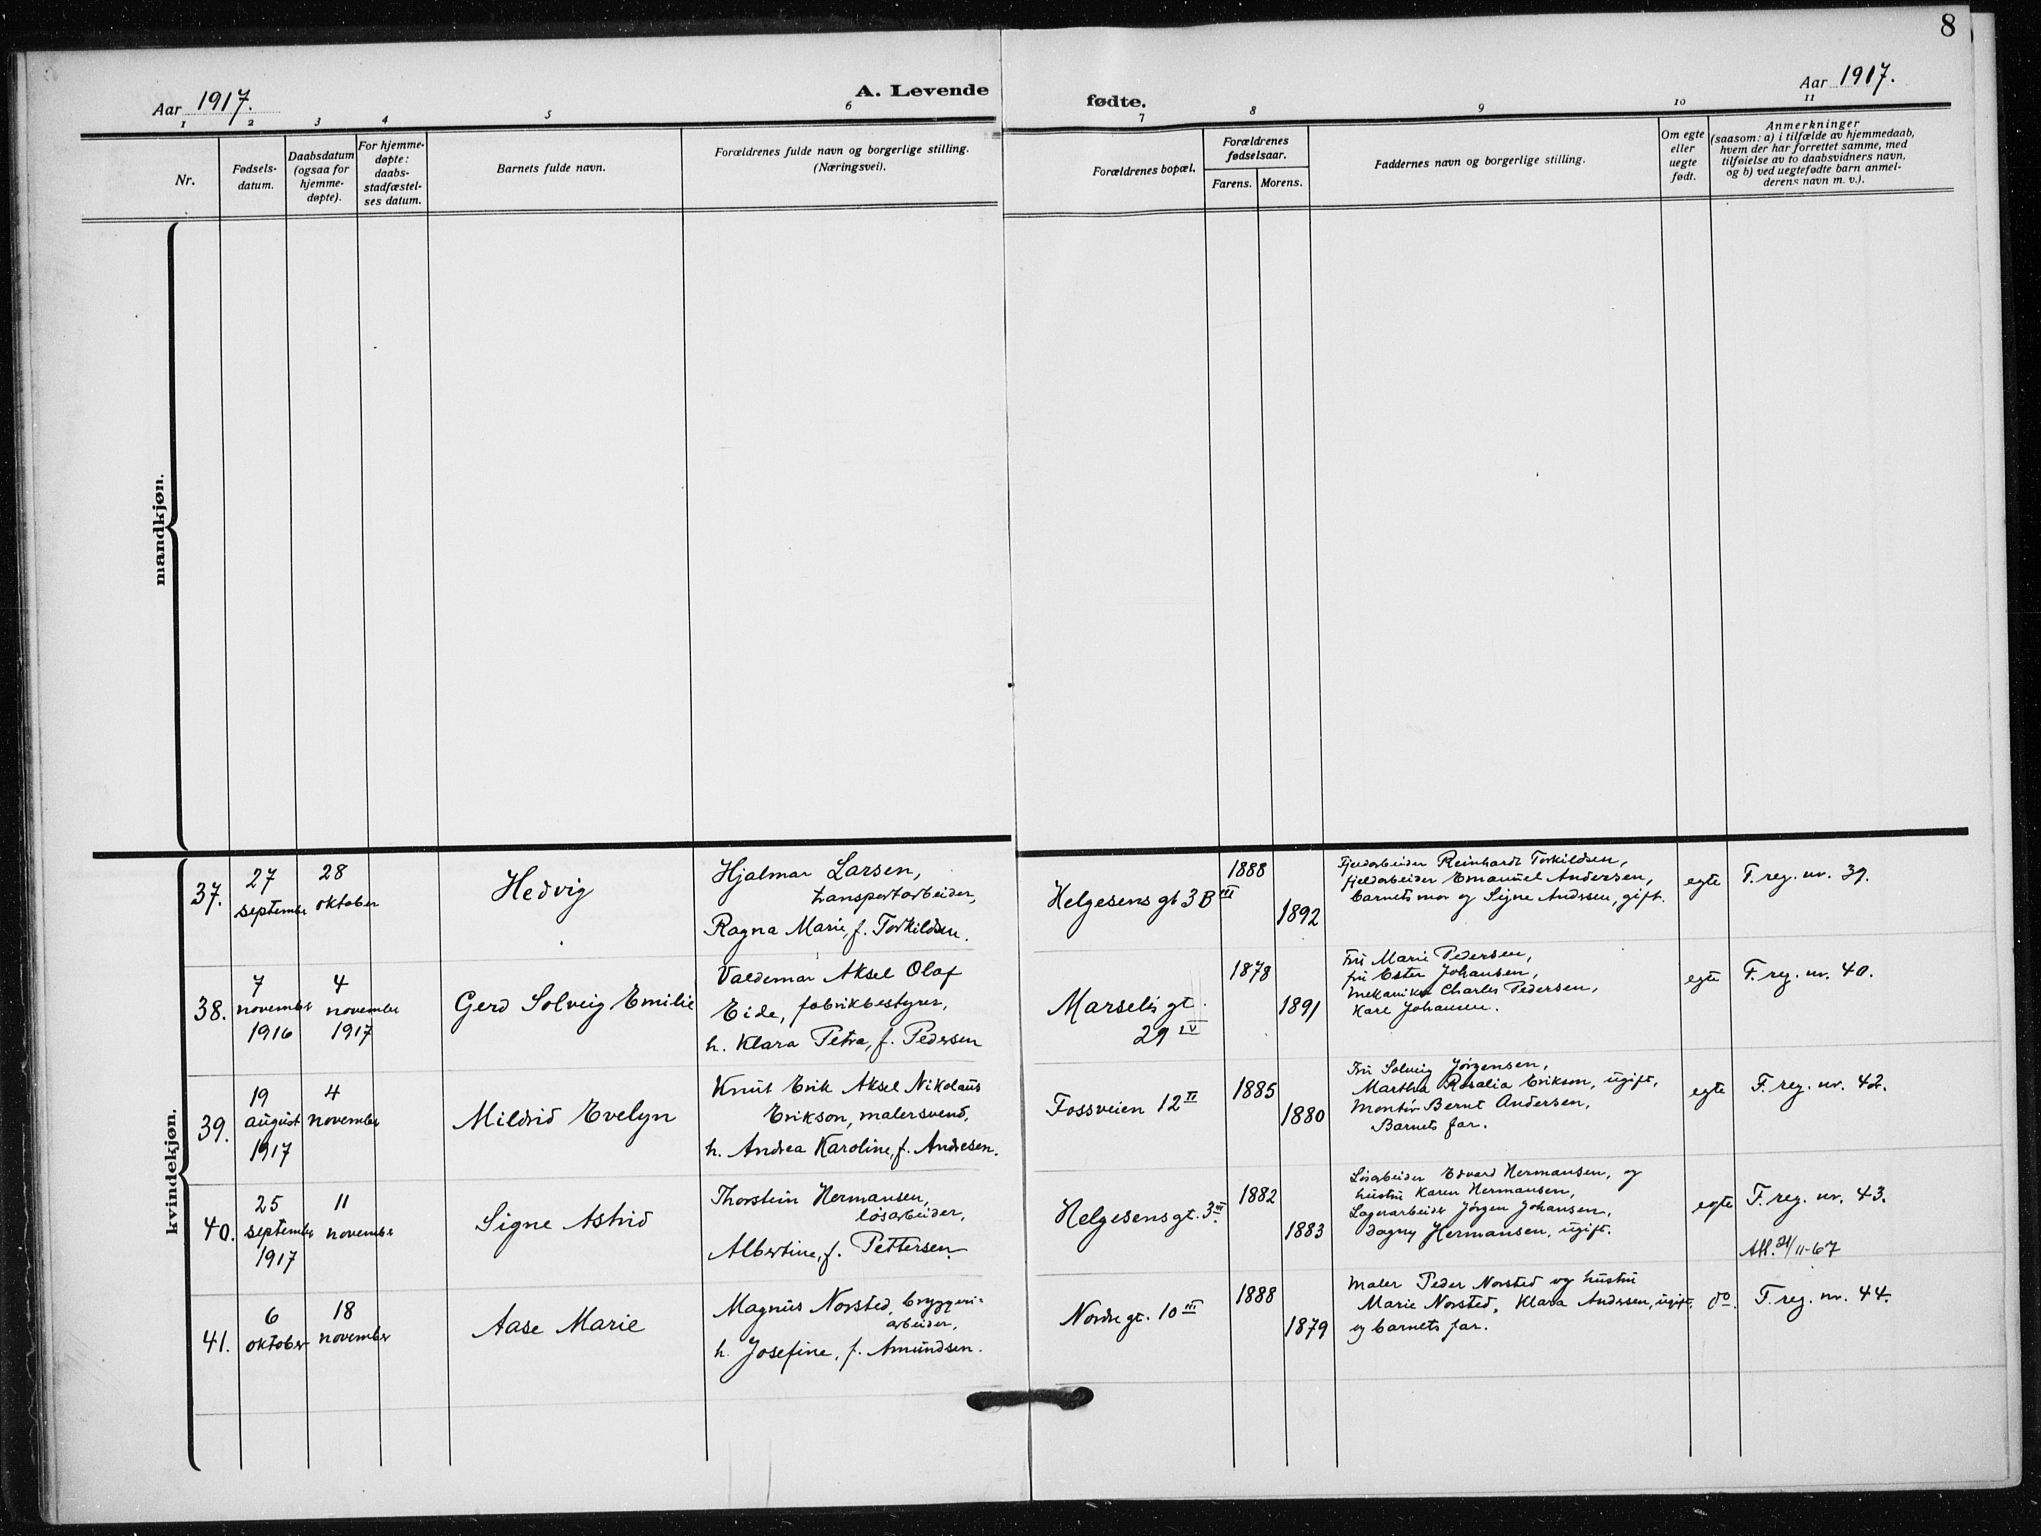 8
Aar 1917.
A. Levende
fødte.
Aar 1917.
1 2 3 4 5 6 7 8 9 10 11
Nr.
Fødsels-
datum.
Daabsdatum
(ogsaa for
hjemme-
døpte).
For hjemme-
døpte:
daabs-
stadfæstel-
ses datum.
Barnets fulde navn.
Forældrenes fulde navn og borgerlige stilling.
(Næringsvei).
Forældrenes bopæl.
Forældrenes
fødselsaar.
Farens. Morens.
Faddernes navn og borgerlige stilling.
Om egte
eller
uegte
født.
Anmerkninger
(saasom: a) i tilfælde av hjemmedaab,
hvem der har forrettet samme, med
tilføielse av to daabsvidners navn,
og b) ved uegtefødte barn anmel-
derens navn m. v.).
mandkjøn.
kvindekjøn.
37.
27
september
28
oktober
Hedvig
Hjalmar Larsen,
transportarbeider,
Ragna Marie, f. Torkildsen.
Helgesens gt 3 B III
1888
1892
Fjeldarbeider Reinhardt Torkildsen,
fjeldarbeider Emanuel Andersen,
barnets mor og Signe Andersen, gift.
egte
F. reg. nr. 39.
38.
7
november
1916
4
november
1917
Gerd Solveig Emilie
Valdemar Aksel Olaf
Eide, fabrikbestyrer,
h. Klara Petra, f. Pedersen
Marselis gt.
29 IV
1878
1891
Fru Marie Pedersen,
fru Ester Johansen,
mekaniker Charles Pedersen,
Karl Johansen.
egte
F. reg. nr. 40.
39.
19
august
1917
4
november
Mildrid Evelyn
Knut Erik Aksel Nikolaus
Erikson, malersvend,
h. Andrea Karoline, f. Andresen.
Fossveien 12 II
1885
1880
Fru Solveig Jørgensen,
Martha Rosalia Erikson, ugift,
Montør Bernt Andersen,
Barnets far.
egte
F. reg. nr. 42.
40.
25
september
1917
11
november
Signe Astrid
Thorstein Hermansen,
løsarbeider,
Albertine, f. Pettersen
Helgesens gt. 3 III
1882
1883
Løsarbeider Edvard Hermansen, og
hustru Karen Hermansen,
Lagerarbeider Jørgen Johansen,
Dagny Hermansen, ugift.
egte
F. reg. nr. 43.
Att. 21/11-67
41.
6
oktober
18
november
Aase Marie
Magnus Norsted, bryggeri-
arbeider,
h. Josefine, f. Amundsen.
Nordre gt. 10 III
1888
1879
Maler Peder Norsted og hustru
Marie Norsted, Klara Andersen, ugift,
og barnets far.
do.
F. reg. nr. 44.